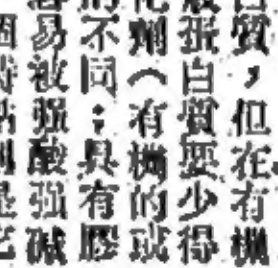 質，但在有機
蛋白質要少得
劑（有機的或
不同；具有膠
易被强酸强碱